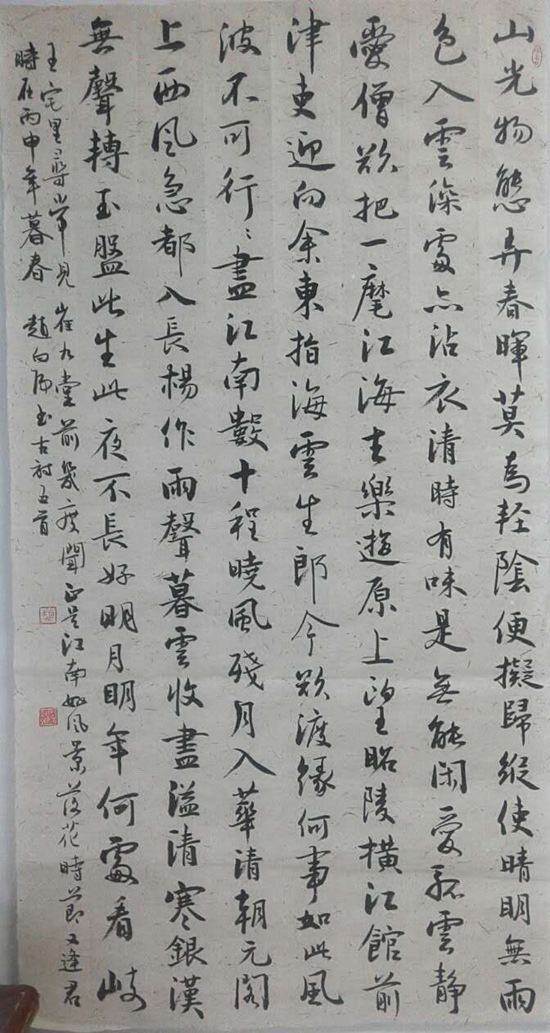 山光物態弄春暉莫為輕陰便擬歸縱使晴明無雨
色入雲深處亦沾衣清時有味是無能閑愛孤雲靜
愛僧欲把一麾江海去樂遊原上望昭陵橫江館前
津吏迎向余東指海雲生郎今欲渡緣何事如此風
波不可行〻盡江南數十程曉風殘月入華清朝元閣
上西風急都入長楊作雨聲暮雲收盡溢清寒銀漢
無聲轉玉盤此生此夜不長好明月明年何處看岐
王宅里尋常見崔九堂前幾度聞正是江南好風景落花時節又逢君
時在丙申年暮春 趙向書古詩五首